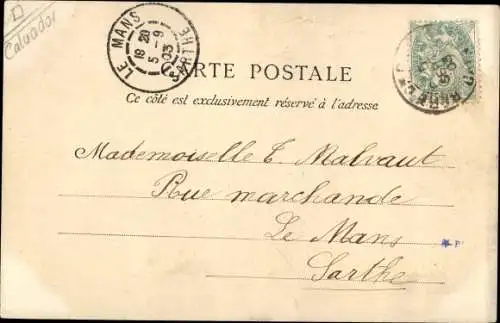 D
Calvados
LE MANS
18 20
5 - 9
03
SARTHE
CARTE POSTALE
Ce côté est exclusivement réservé à l'adresse
Mademoiselle T. Malvaut
Rue marchande
Le Mans
Sarthe